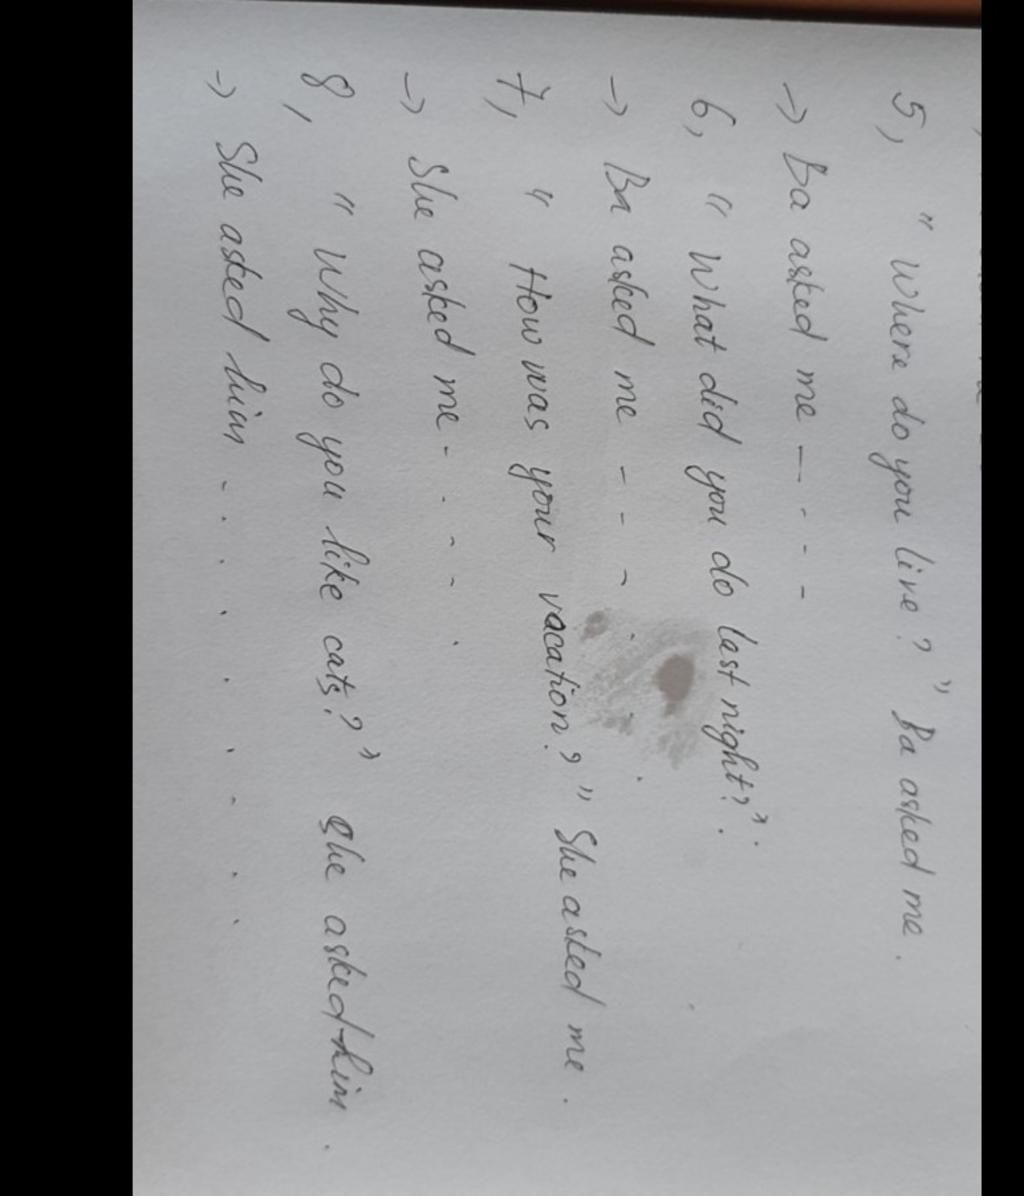 5, " Where do you live? " Ba asked me.
-> Ba asked me — . - -
6, " What did you do last night? ".
-> Ba asked me - - - . . .
7, " How was your vacation? " She asked me.
-> She asked me - . - - .
8, " Why do you like cats? " She asked him.
-> She asked him - . . . . . . . .